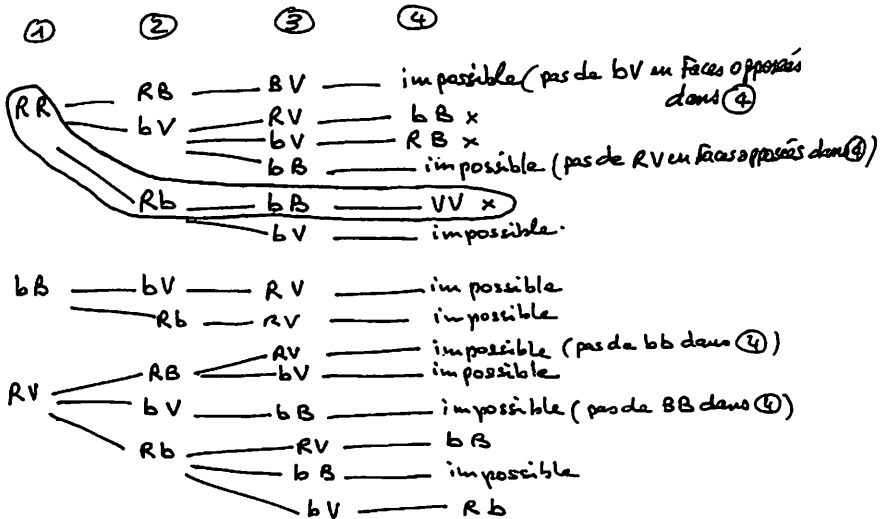 ① ② ③ ④
RR RB BV impossible (pas de bV en Faces opposées
dans ④
bV RV bB x
bV RB x
bB impossible (pas de RV en Faces opposées dans ④)
Rb bB VV x
bV impossible.
bB bV RV impossible
Rb RV impossible
RV impossible (pas de bb dans ④)
RB bV impossible
RV
bV bB impossible (pas de BB dans ④)
Rb RV bB
bB impossible
bV Rb